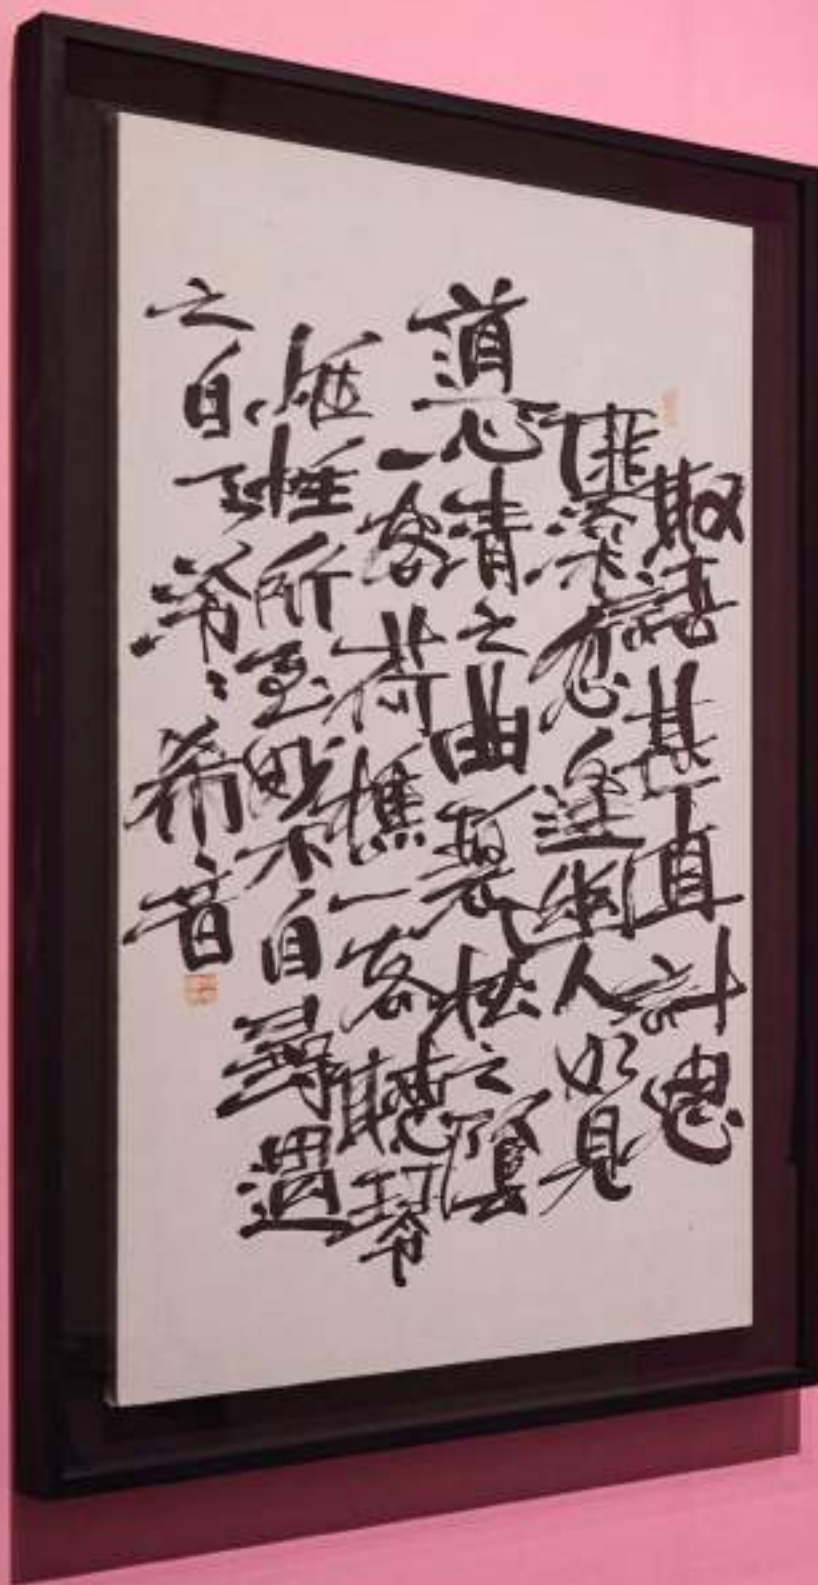 取語甚直計思
匪深忽逢幽人如見
道心清之曲碧松之陰
一客荷樵一客聽琴
性所至妙不自尋遇
之自天泠々希音